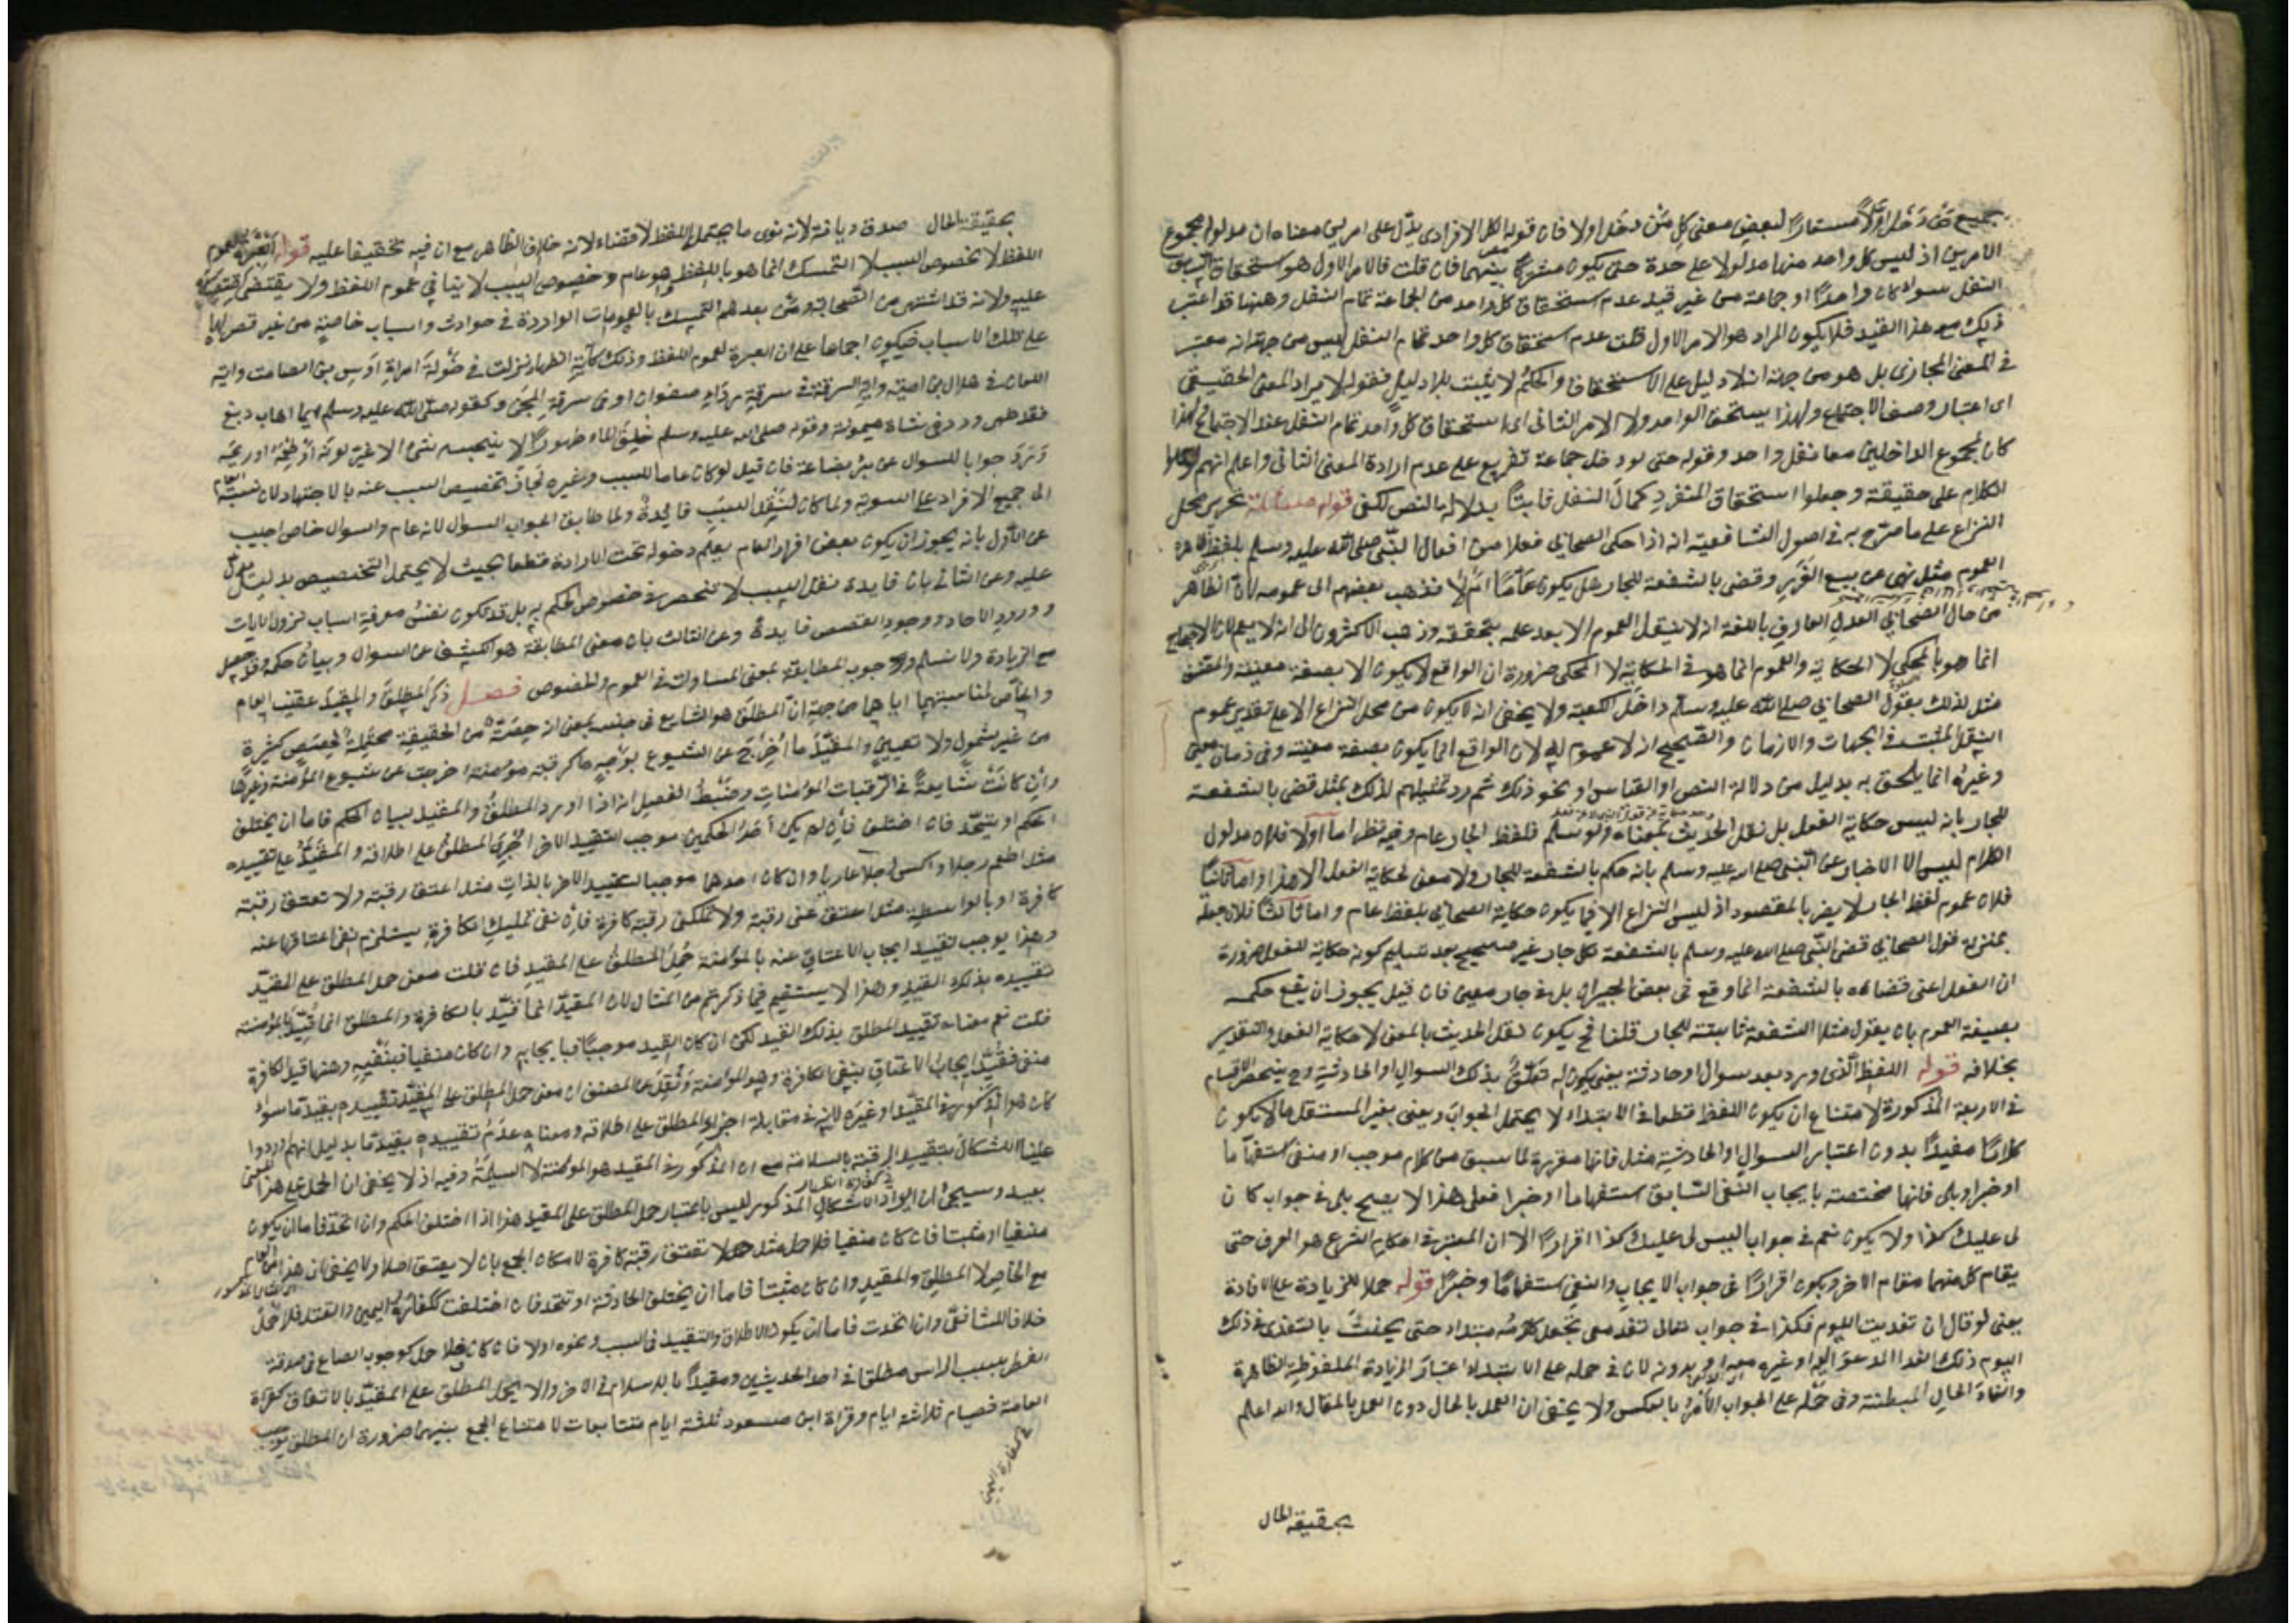 جميع من دخل اولا مستعارا لبعض معنى كل من دخل اولا فان قوله الكل الافرادى يدل على امرين معناه ان مدلوله مجموع
الامرين اذ ليس كل واحد منهما مدلولا على حدة حتى يكون مشتركا بينهما فان قلت فالامر الاول هو استحقاق السابق
النفل سواء كان واحدا او جماعة من غير قيد عدم استحقاق كل واحد من الجماعة تمام النفل وههنا قد اعتبر
ذلك مع هذا القيد فلا يكون المراد هو الامر الاول قلت عدم استحقاق كل واحد تمام النفل ليس من جهة انه معتبر
في المعنى المجازى بل هو من جهة انه لا دليل على الاستحقاق والحكم لا يثبت بلا دليل فقوله لا يراد المعنى الحقيقى
اى اعتبار وصف الاجتماع ولهذا يستحق الواحد ولا الامر الثانى اى استحقاق كل واحد تمام النفل عند الاجتماع لهذا
كان لمجموع الداخلين معا نفل واحد وقوله حتى لو دخل جماعة تفريع على عدم ارادة المعنى الثانى واعلم انهم
الكلام على حقيقته وجعلوا استحقاق المنفرد كمال النفل ثابتا بدلالة النص لكفى قوله مسئلة تحرير محل
النزاع على ما صرح به في اصول الشافعية انه اذا حكى الصحابي فعلا من افعال النبى صلى الله عليه وسلم بلفظ ظاهره
العموم مثل نهى عن بيع الغرر وقضى بالشفعة للجار هل يكون عاما ام لا فذهب بعضهم الى عمومه لان الظاهر
من حال الصحابي العدل العارف باللغة انه لا ينقل العموم الا بعد علمه بتحققه وذهب الاكثرون الى انه لا يعم لان الاحتجاج
انما هو بالمحكى لا الحكاية والعموم انما هو في الحكاية لا المحكى ضرورة ان الواقع لا يكون الا بصفة معينة والمصنف
مثل لذلك بقول الصحابي صلى الله عليه وسلم داخل الكعبة ولا يخفى انه لا يكون من محل النزاع الا على تقدير عموم
الفعل المثبت في الجهات والازمان والصحيح انه لا عموم له لان الواقع انما يكون بصفة معينة وفى زمان معين
وغيره انما يلحق به بدليل من دلالة النص او القياس او نحو ذلك ثم رد تمثيلهم لذلك بمثل قضى بالشفعة
للجار بانه ليس حكاية الفعل بل نقل الحديث بمعناه ولو سلم فلفظ الجار عام وفيه نظر اما اولا فلان مدلول
الكلام ليس الا الاخبار عن النبى صلى الله عليه وسلم بانه حكم بالشفعة للجار ولا معنى لحكاية الفعل الا هذا واما ثانيا
فلان عموم لفظ الجار لا يضر بالمقصود اذ ليس النزاع الا فيما يكون حكاية الصحابي بلفظ عام واما ثالثا فلان جعله
بمنزلة قول الصحابي قضى النبى صلى الله عليه وسلم بالشفعة لكل جار غير صحيح بعد تسليم كونه حكاية للفعل ضرورة
ان الفعل اعنى قضاءه بالشفعة انما وقع في بعض الجيران بل في جار معين فان قيل يجوز ان يقع حكمه
بصيغة العموم بان يقول مثلا الشفعة ثابتة للجار قلنا فح يكون نقل الحديث بالمعنى لا حكاية الفعل والتقدير
بخلافه قوله اللفظ الذى ورد بعد سؤال او حادثة يعنى يكون له تعلق بذلك السوال او الحادثة وح ينحصر الاقسام
في الاربعة المذكورة لامتناع ان يكون اللفظ قطعا في الابتداء لا يحتمل الجواب ويعنى بغير المستقل ما لا يكون
كلاما مفيدا بدون اعتبار السوال او الحادثة مثل فانها مقررة لما سبق من كلام موجب او منفى استفهاما
او خبرا وبلى فانها مختصة بايجاب النفى السابق استفهاما او خبرا فعلى هذا لا يصح بلى في جواب كان
لى عليك كذا ولا يكون نعم في جواب اليس لى عليك كذا اقرارا الا ان المعتبر في احكام الشرع هو العرف حتى
يقام كل منهما مقام الاخر ويكون اقرارا في جواب الايجاب والنفى استفهاما وخبرا قوله حملا للزيادة على الافادة
يعنى لو قال ان تغديت اليوم فكذا في جواب تعال تغد معى نجعل كلامه مبتداء حتى يحنث بالتغدى في ذلك
اليوم ذلك الغداء المدعو اليه او غيره معه او بدونه لان في حمله على الابتداء اعتبار الزيادة الملفوظة الظاهرة
والغاء الحال المبطنة وفى حمله على الجواب الامر بالعكس ولا يخفى ان العمل بالحال دون العمل بالمقال والله اعلم
بحقيقة الحال
بحقيقة الحال صدق ديانة لانه نوى ما يحتمل اللفظ لا قضاء لانه خلاف الظاهر مع ان فيه تخفيفا عليه قوله العبرة لعموم
اللفظ لا لخصوص السبب لان التمسك انما هو باللفظ وهو عام وخصوص السبب لا ينافي عموم اللفظ ولا يقتضى اقتصاره
عليه ولانه قد اشتهر من الصحابة ومن بعدهم التمسك بالعمومات الواردة في حوادث واسباب خاصة من غير قصر لها
على تلك الاسباب فيكون اجماعا على ان العبرة لعموم اللفظ وذلك كآية الظهار نزلت في خولة امراة اوس بن الصامت واية
اللعان في هلال بن امية واية السرقة في سرقة رداء صفوان او في سرقة المجن وكقوله صلى الله عليه وسلم ايما اهاب دبغ
فقد طهر ورد في شاة ميمونة وقوله صلى الله عليه وسلم خلق الماء طهورا لا ينجسه شئ الا ما غير لونه او طعمه او ريحه
ورد جوابا للسوال عن بئر بضاعة فان قيل لو كان عاما للسبب وغيره لجاز تخصيص السبب عنه بالاجتهاد لان نسبة العام
الى جميع الافراد على السوية ولما كان لنقل السبب فايدة ولما طابق الجواب السوال لانه عام والسوال خاص اجيب
عن الاول بانه يجوز ان يكون بعض افراد العام يعلم دخوله تحت الارادة قطعا بحيث لا يحتمل التخصيص بدليل يدل
عليه وعن الثانى بان فايدة نقل السبب لا ينحصر في خصوص الحكم به بل قد تكون نفس معرفة اسباب نزول الايات
وورود الاحاد ووجود القصص فايدة وعن الثالث بان معنى المطابقة هو الكشف عن السوال وبيان حكمه وقد حصل
مع الزيادة ولا نسلم وجوب المطابقة بمعنى المساواة في العموم والخصوص فصل ذكر المطلق والمقيد عقيب العام
والخاص لمناسبتهما اياهما من جهة ان المطلق هو الشايع في جنسه بمعنى انه حصة من الحقيقة محتملة لحصص كثيرة
من غير شمول ولا تعيين والمقيد ما اخرج عن الشيوع بوجه ما كرقبة مؤمنة اخرجت عن شيوع المؤمنة وغيرها
وان كانت شايعة في الرقبات المؤمنات وضبط الفصل انه اذا ورد المطلق والمقيد لبيان الحكم فاما ان يختلف
الحكم او يتحد فان اختلف فان لم يكن احد الحكمين موجب لتقييد الاخر اجرى المطلق على اطلاقه والمقيد على تقييده
مثل اطعم رجلا واكس رجلا عاريا وان كان احدهما موجبا لتقييد الاخر بالذات مثل اعتق رقبة ولا تعتق رقبة
كافرة او بالواسطة مثل اعتق عنى رقبة ولا تملكنى رقبة كافرة فان نفى تمليك الكافرة يستلزم نفى اعتاقها عنه
وهذا يوجب تقييد ايجاب الاعتاق عنه بالمؤمنة حمل المطلق على المقيد فان قلت معنى حمل المطلق على المقيد
تقييده بذلك القيد وهذا لا يستقيم فيما ذكرتم من المثال لان المقيد انما قيد بالكافرة والمطلق انما قيد بالمؤمنة
قلت نعم معناه تقييد المطلق بذلك القيد لكن ان كان القيد موجبا فبايجابه وان كان منفيا فبنفيه وههنا قيد الكافرة
منفى فقيد ايجاب الاعتاق بنفى الكافرة وهو المؤمنة ونقل عن المصنف ان معنى حمل المطلق على المقيد تقييده بقيد ما سواء
كان هو المذكور في المقيد او غيره لانه في مقابلة اجراء المطلق على اطلاقه ومعناه عدم تقييده بقيد ما بدليل انهم اوردوا
علينا الاشكال بتقييد الرقبة بالسلامة مع ان المذكور في المقيد هو المؤمنة لا السليمة وفيه اذ لا يخفى ان الحمل على هذا المعنى
بعيد وسيجئ ان ايراد الاشكال المذكور ليس باعتبار حمل المطلق على المقيد هذا اذا اختلف الحكم وان اتحد فاما ان يكون
منفيا او مثبتا فان كان منفيا فلا حمل مثل لا تعتق رقبة كافرة لامكان الجمع بان لا يعتق اصلا ولا يخفى ان هذا من العام
مع الخاص لا المطلق والمقيد وان كان مثبتا فاما ان يختلف الحادثة او تتحد فان اختلفت ككفارة اليمين والقتل فلا حمل
خلافا للشافعى وان اتحدت فاما ان يكون الاطلاق والتقييد في السبب ونحوه اولا فان كان فلا حمل كوجوب الصاع في صدقة
الفطر بسبب الراس مطلقا في احد الحديثين ومقيدا بالاسلام في الاخر والا يحمل المطلق على المقيد بالاتفاق كقراة
العامة فصيام ثلاثة ايام وقراة ابن مسعود ثلثة ايام متتابعات لامتناع الجمع بينهما ضرورة ان المطلق يوجب
في كفارة اليمين